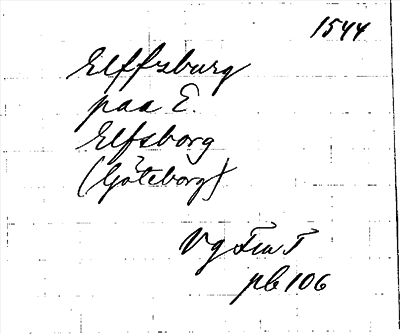 1544
Elffzburg
paa E.
Elfsborg
(Göteborg)
Vg Fru T
pb 106